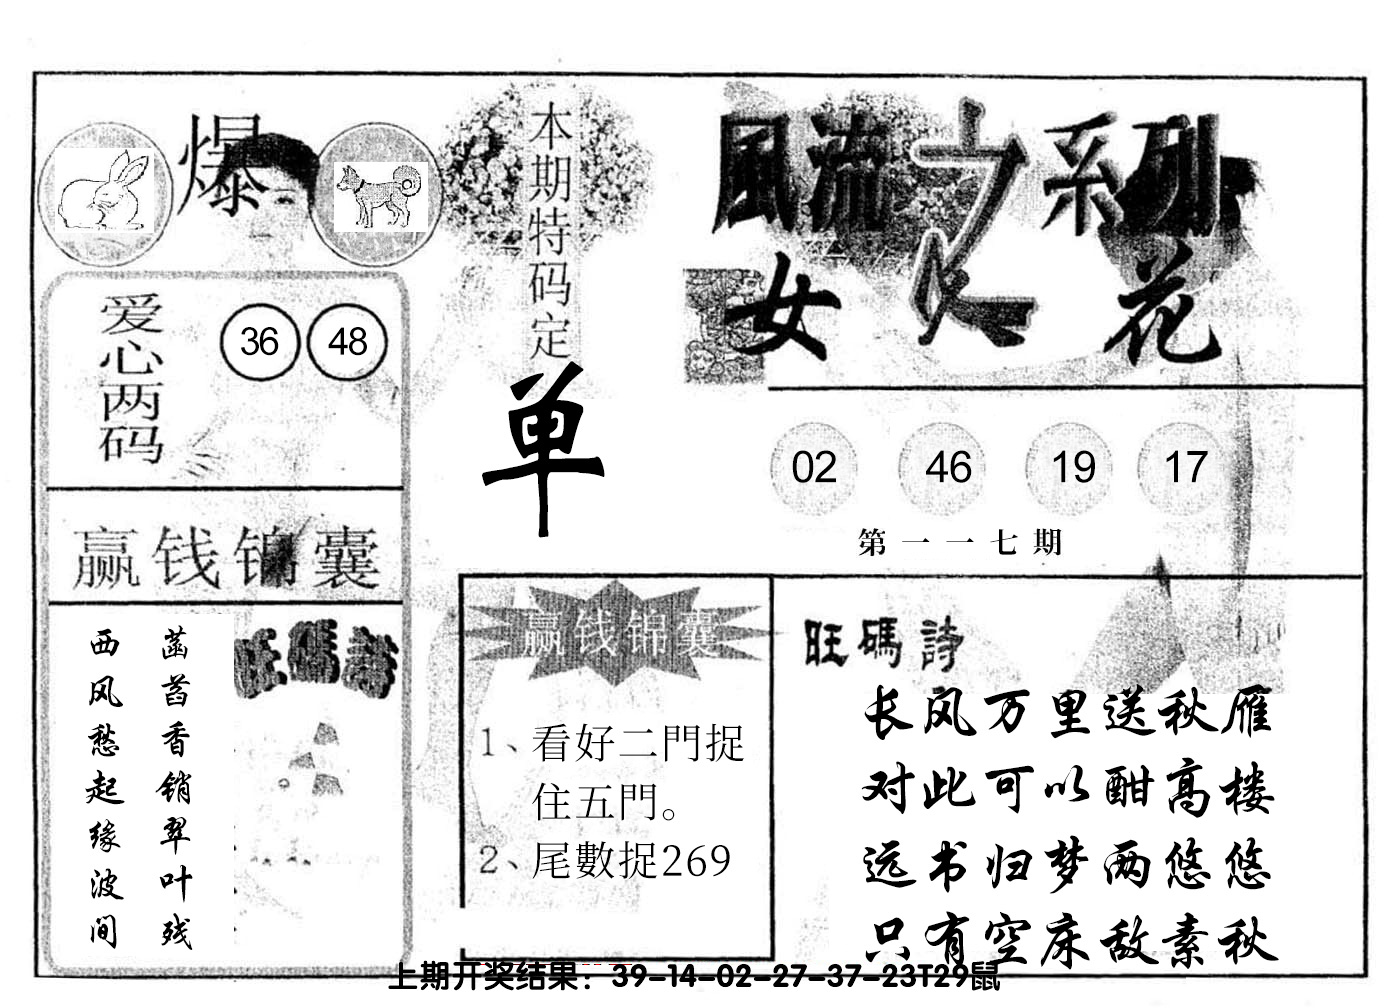 爆
本期特码定
单
風流之系列
女人花
爱心两码
36 48
02 46 19 17
第一一七期
赢钱锦囊
旺碼詩
菡萏香销翠叶残
西风愁起缘波间
赢钱锦囊
1、看好二門捉
住五門。
2、尾數捉269
旺碼詩
长风万里送秋雁
对此可以酣高楼
远书归梦两悠悠
只有空床敌素秋
上期开奖结果：39-14-02-27-37-23T29鼠